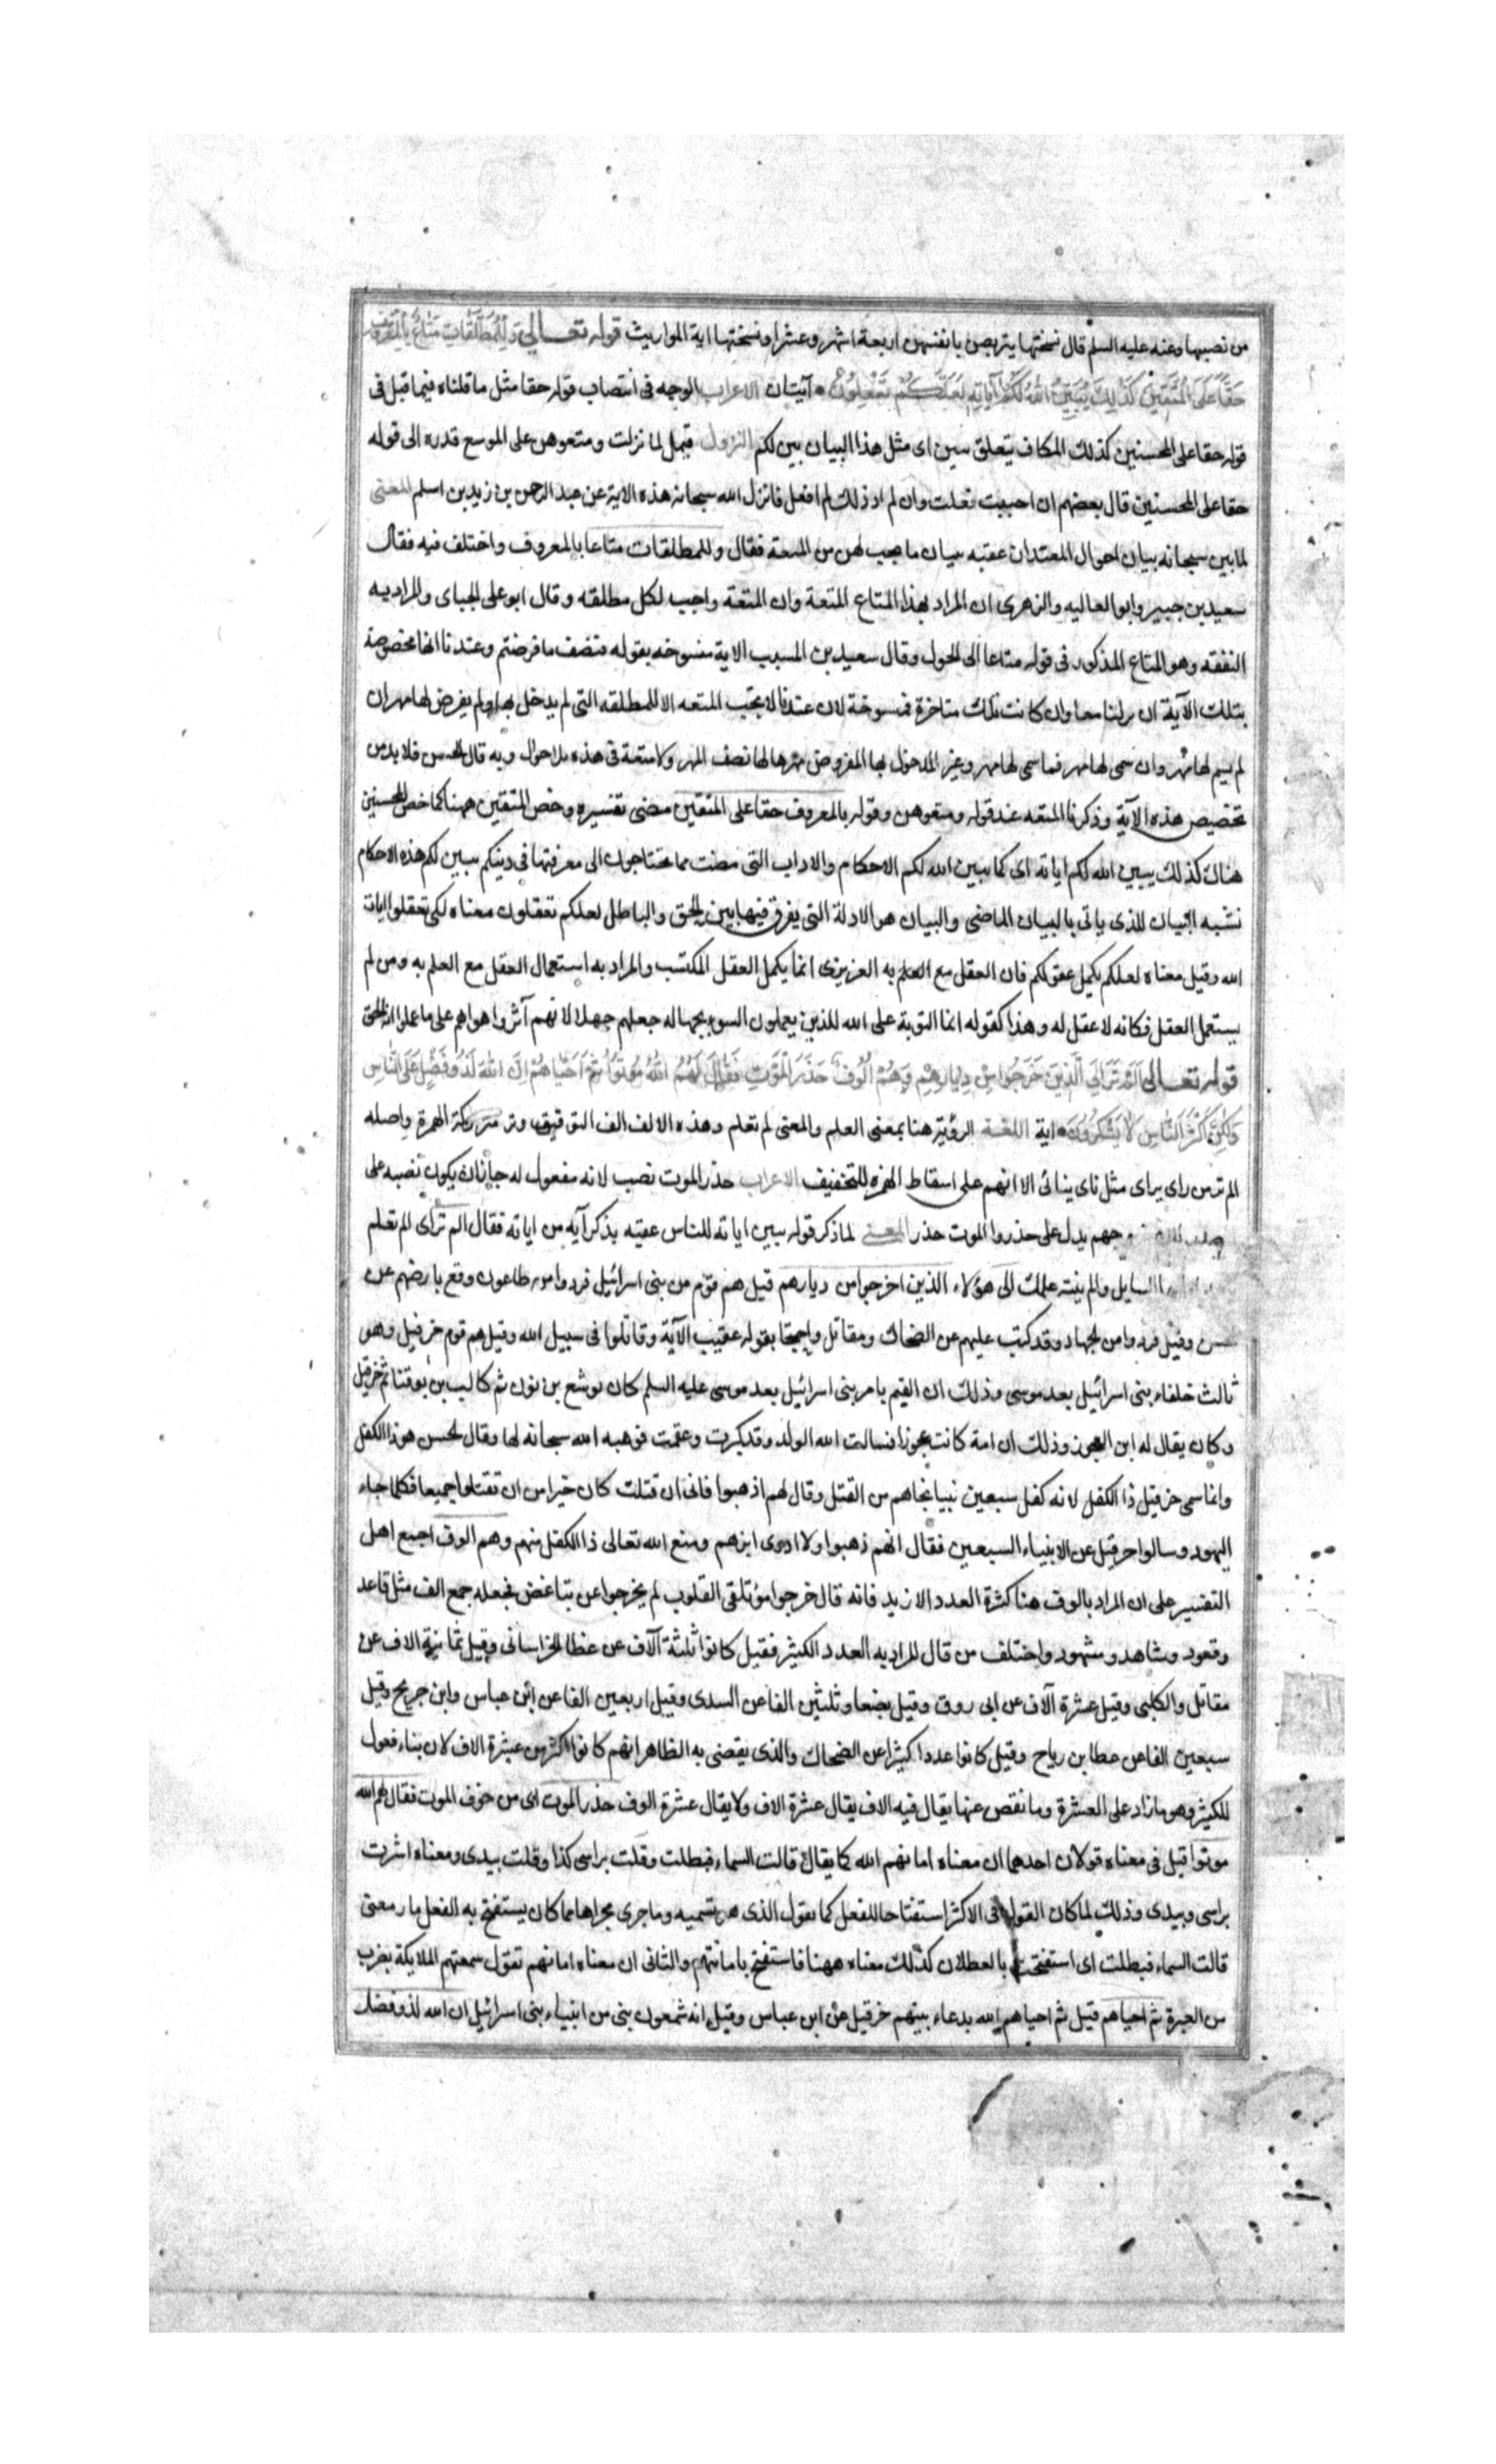 من نصيبها وعنه عليه السلم قال نسختها يتربصن بانفسهن اربعة اشهر وعشرا ونسختها اية المواريث قوله تعالى وَلِلْمُطَلَّقَاتِ مَتَاعٌ بِالْمَعْرُوفِ
حَقًّا عَلَى الْمُتَّقِينَ كَذَلِكَ يُبَيِّنُ اللهُ لَكُمْ آيَاتِهِ لَعَلَّكُمْ تَعْقِلُونَ آيتان الاعراب الوجه فى انتصاب قوله حقا مثل ما قلناه فيما قبل فى
قوله حقا على المحسنين كذلك الكاف يتعلق بيبين اى مثل هذا البيان يبين لكم النزول قيل لما نزلت ومتعوهن على الموسع قدره الى قوله
حقا على المحسنين قال بعضهم ان احببت فعلت وان لم ارد ذلك لم افعل فانزل الله سبحانه هذه الاية عن عبد الرحمن بن زيد بن اسلم المعنى
لما بين سبحانه بيان احوال المعتدات عقبه ببيان ما يجب لهن من المتعة فقال وللمطلقات متاعا بالمعروف واختلف فيه فقال
سعيد بن جبير وابو العاليه والزهرى ان المراد بهذا المتاع المتعة وان المتعة واجب لكل مطلقه وقال ابو على الجباى والمراد به
النفقه وهو المتاع المذكور فى قوله متاعا الى الحول وقال سعيد بن المسيب الاية منسوخه بقوله فنصف ما فرضتم وعندنا انها مخصوصة
بتلك الآية ان نزلتا معا وان كانت تلك متاخرة فمنسوخة لان عندنا لا تجب المتعه الا للمطلقه التى لم يدخل بها ولم يفرض لها مهر ان
لم يسم لها مهر وان سمى لها مهر فما سمى لها مهر وغير المدخول بها المفروض مهرها لها نصف المهر ولا متعة فى هذه الاحوال وبه قال الحسن فلا بد من
تخصيص هذه الآية وذكرنا المتعه عند قوله ومتعوهن وقوله بالمعروف حقا على المتقين مضى تفسيره وخص المتقين ههنا كما خص المحسنين
هناك كذلك يبين الله لكم اياته اى كما يبين الله لكم الاحكام والاداب التى مضت مما تحتاجون الى معرفتها فى دينكم يبين لكم هذه الاحكام
نشبه البيان الذى ياتى بالبيان الماضى والبيان هو الادلة التى يفرق فيها بين الحق والباطل لعلكم تعقلون معناه لكى تعقلوا ايات
الله وقيل معناه لعلكم يكمل عقولكم فان العقل مع العلم به الغريزى انما يكمل العقل المكتسب والمراد به استعمال العقل مع العلم به ومن لم
يستعمل العقل فكانه لا عقل له وهذا كقوله انما التوبة على الله للذين يعملون السوء بجهاله جعلهم جهلا لانهم آثروا هواهم على ما علموا انه الحق
قوله تعالى اَلَمْ تَرَ اِلَى الَّذِينَ خَرَجُوا مِنْ دِيَارِهِمْ وَهُمْ اُلُوفٌ حَذَرَ الْمَوْتِ فَقَالَ لَهُمُ اللهُ مُوتُوا ثُمَّ اَحْيَاهُمْ اِنَّ اللهَ لَذُو فَضْلٍ عَلَى النَّاسِ
وَلَكِنَّ اَكْثَرَ النَّاسِ لَا يَشْكُرُونَ اية اللغة الرؤية هنا بمعنى العلم والمعنى لم تعلم وهذه الالف الف التوقيف وتر متركة الهمزة واصله
الم تر من راى يراى مثل ناى ينائى الا انهم على اسقاط الهمزه للتخفيف الاعراب حذر الموت نصب لانه مفعول له جاز ان يكون نصبه على
جهم يدل على حذروا الموت حذر المعنى لما ذكر قوله يبين اياته للناس عقبه بذكر آيه من اياته فقال الم تر اى الم تعلم
السايل والم ينته علمك الى هؤلاء الذين اخرجوا من ديارهم قيل هم قوم من بنى اسرائيل فروا من طاعون وقع بارضهم عن
وقيل فروا من الجهاد وقد كتب عليهم عن الضحاك ومقاتل واحتجا بقوله عقيب الآية وقاتلوا فى سبيل الله وقيل هم قوم حزقيل وهو
ثالث خلفاء بنى اسرائيل بعد موسى وذلك ان القيم بامر بنى اسرائيل بعد موسى عليه السلم كان يوشع بن نون ثم كالب بن يوقنا ثم حزقيل
وكان يقال له ابن العجوز وذلك ان امه كانت عجوزا فسالت الله الولد وقد كبرت وعقمت فوهبه الله سبحانه لها وقال الحسن هو ذا الكفل
وانما سمى حزقيل ذا الكفل لانه كفل سبعين نبيا نجاهم من القتل وقال لهم اذهبوا فانى ان قتلت كان خيرا من ان تقتلوا جميعا فكلما جاء
اليهود وسالوا حزقيل عن الانبياء السبعين فقال انهم ذهبوا ولا ادرى اين هم ومنع الله تعالى ذا الكفل منهم وهم الوف اجمع اهل
التفسير على ان المراد بالوف هنا كثرة العدد الا زيد فانه قال خرجوا مؤتلفى القلوب لم يخرجوا عن تباغض فجعله جمع الف مثل قاعد
وقعود وشاهد وشهود واختلف من قال المراد به العدد الكثير فقيل كانوا ثلثة آلاف عن عطا الخراسانى وقيل ثمانية الاف عن
مقاتل والكلبى وقيل عشرة آلاف عن ابى روق وقيل بضعا وثلثين الفا عن السدى وقيل اربعين الفا عن ابن عباس وابن جريح وقيل
سبعين الفا عن عطا بن رياح وقيل كانوا عددا كثيرا عن الضحاك والذى يقضى به الظاهر انهم كانوا اكثر من عشرة الاف لان بناء فعول
للكثير وهو ما زاد على العشرة وما نقص عنها يقال فيه الاف يقال عشرة الاف ولا يقال عشرة الوف حذر الموت اى من خوف الموت فقال لهم الله
موتوا قيل فى معناه قولان احدهما ان معناه اماتهم الله كما يقال قالت السماء فبطلت وقلت براسى كذا وقلت بيدى ومعناه اشرت
براسى وبيدى وذلك لما كان القول فى الاكثر استفتاحا للفعل كما نقول الذى هو تسميه وما جرى مجراها مما كان يستفتح به الفعل صار معنى
قالت السماء فبطلت اى استفتحت بالهطلان كذلك معناه ههنا فاستفتح باماتتهم والثانى ان معناه اماتهم بقول سمعتهم الملايكة بضرب
من العبرة ثم احياهم قيل ثم احياهم الله بدعاء نبيهم حزقيل عن ابن عباس وقيل انه شمعون نبى من انبياء بنى اسرائيل ان الله لذو فضل